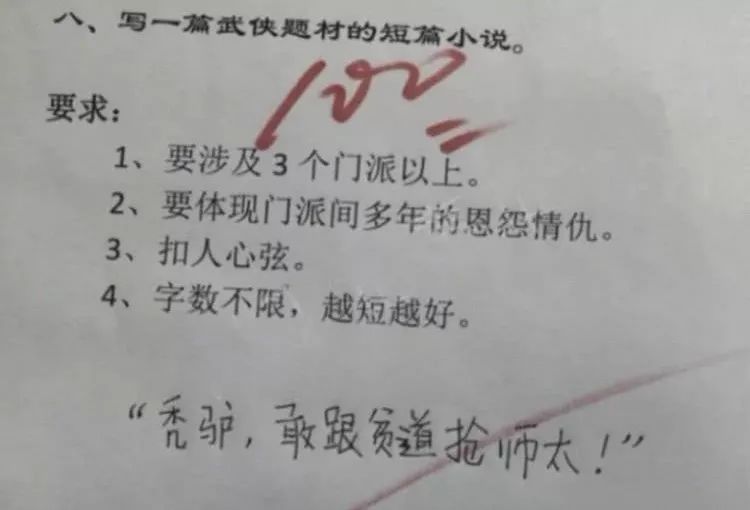 八、写一篇武侠题材的短篇小说。
100
要求：
1、要涉及 3 个门派以上。
2、要体现门派间多年的恩怨情仇。
3、扣人心弦。
4、字数不限，越短越好。
“秃驴，敢跟贫道抢师太！”